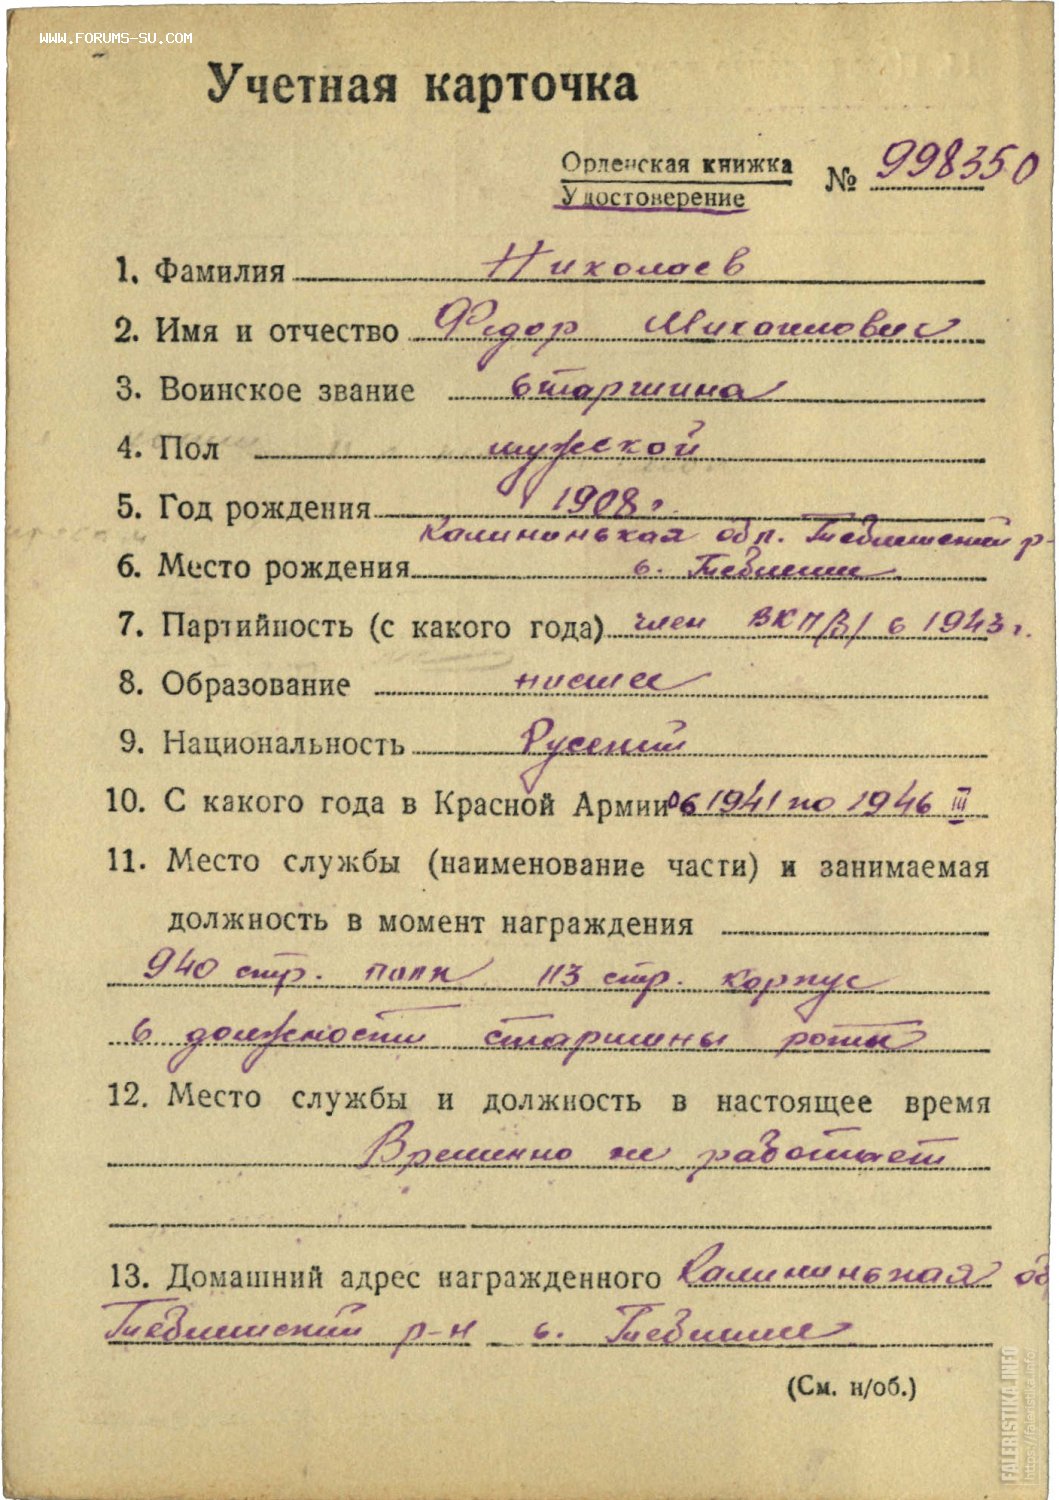 WWW.FORUMS-SU.COM
Учетная карточка
Орденская книжка
Удостоверение
№ 998350
1. Фамилия Николаев
2. Имя и отчество Федор Михаилович
3. Воинское звание старшина
4. Пол мужской
5. Год рождения 1908 г.
Калининькая обл. р-
6. Место рождения с.
7. Партийность (с какого года) член ВКП/В/ с 1943 г.
8. Образование нисшее
9. Национальность Русский
10. С какого года в Красной Армии с 1941 по 1946 III
11. Место службы (наименование части) и занимаемая
должность в момент награждения
940 стр. полк 113 стр. корпус
в должности старшины роты
12. Место службы и должность в настоящее время
Временно не работает
13. Домашний адрес награжденного Калининькая об
р-н с.
(См. н/об.)
FALERISTIKA.INFO
https://faleristika.info/